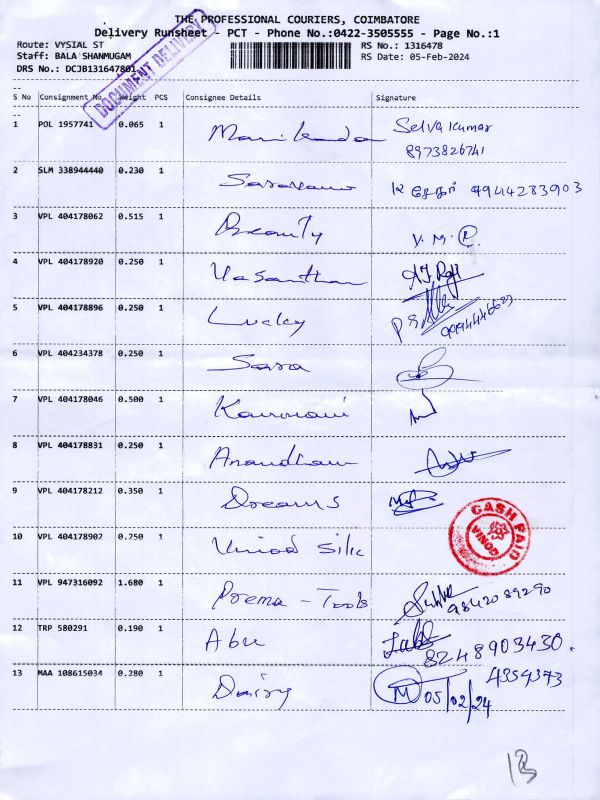 THE PROFESSIONAL COURIERS, COIMBATORE
Delivery Runsheet - PCT - Phone No.:0422-3505555 - Page No.:1
Route: VYSIAL ST RS No.: 1316478
Staff: BALA SHANMUGAM RS Date: 05-Feb-2024
DRS No.: DCJB131647801
DOCUMENT DELIVERY
S No Consignment No Weight PCS Consignee Details Signature
1 POL 1957741 0.065 1 Selvakumar
8973826741
2 SLM 338944440 0.230 1 Saravana K சேகர் 9944283903
3 VPL 404178062 0.515 1 Beauty V.M.
4 VPL 404178920 0.250 1 Vasantham
5 VPL 404178896 0.250 1 Lucky
6 VPL 404234378 0.250 1 Sara
7 VPL 404178046 0.500 1
8 VPL 404178831 0.250 1 Anandham
9 VPL 404178212 0.350 1 Dreams
10 VPL 404178902 0.250 1 Vinod Silk CASH PAID VINOD
11 VPL 947316092 1.680 1 Prema - Tools 9842089290
12 TRP 580291 0.190 1 Abu
8248903430.
13 MAA 108615034 0.280 1 Dairy 4359373
M 05/02/24
13